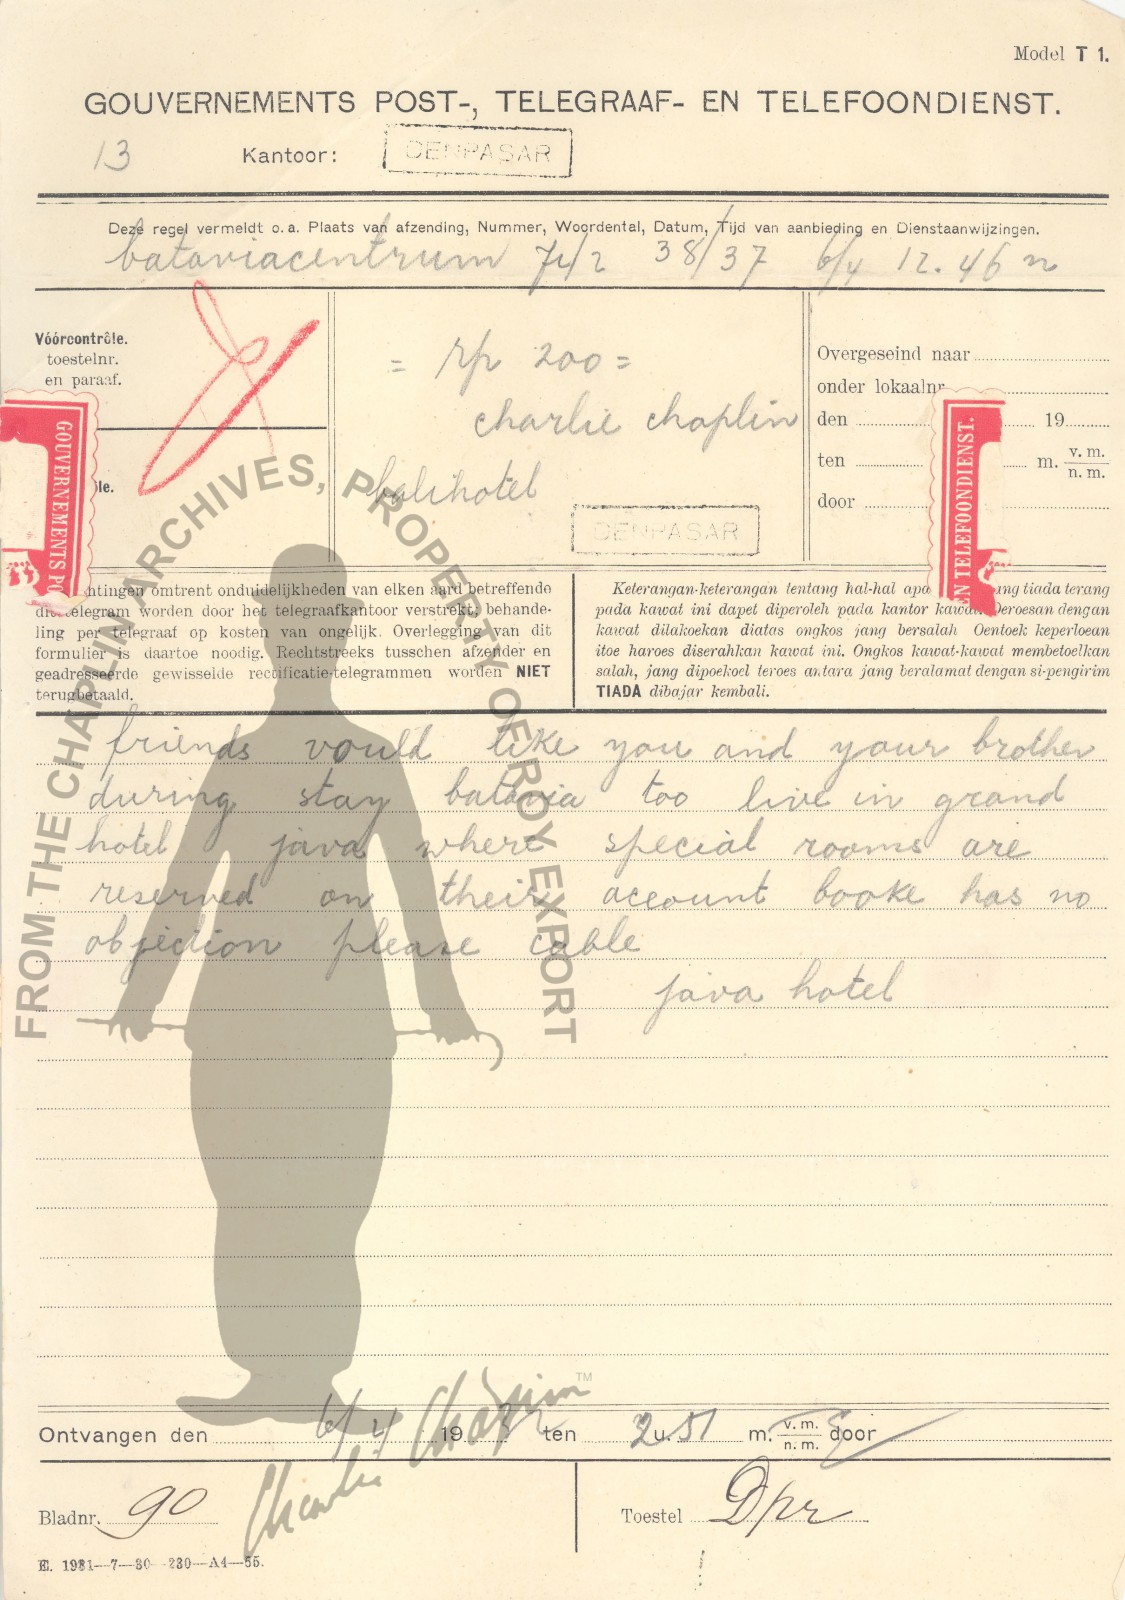 Model T 1.
GOUVERNEMENTS POST-, TELEGRAAF- EN TELEFOONDIENST.
13 Kantoor: DENPASAR
Deze regel vermeldt o.a. Plaats van afzending, Nummer, Woordental, Datum, Tijd van aanbieding en Dienstaanwijzingen.
bataviacentrum 38/37 6/4 12.46 n
Vóórcontrôle.
toestelnr.
en paraaf.
= rp 200 =
charlie chaplin
balihotel
DENPASAR
Overgeseind naar
onder lokaalnr
den 19
ten m. v. m.
n. m.
door
GOUVERNEMENTS PO
EN TELEFOONDIENST.
le.
htingen omtrent onduidelijkheden van elken aard betreffende
dit telegram worden door het telegraafkantoor verstrekt; behande-
ling per telegraaf op kosten van ongelijk. Overlegging van dit
formulier is daartoe noodig. Rechtstreeks tusschen afzender en
geadresseerde gewisselde rectificatie-telegrammen worden NIET
terugbetaald.
Keterangan-keterangan tentang hal-hal apa ng tiada terang
pada kawat ini dapet diperoleh pada kantor kawat. Oeroesan dengan
kawat dilakoekan diatas ongkos jang bersalah Oentoek keperloean
itoe haroes diserahkan kawat ini. Ongkos kawat-kawat membetoelkan
salah, jang dipoekoel teroes antara jang beralamat dengan si-pengirim
TIADA dibajar kembali.
friends vould like you and your brother
during stay batavia too live in grand
hotel java where special rooms are
reserved on their account booke has no
objection please cable
java hotel
FROM THE CHAPLIN ARCHIVES, PROPERTY OF ROY EXPORT
TM
Charlie Chaplin
Ontvangen den 6/4 19 ten 2u.51 m. v. m.
n. m. door
Bladnr. 90
Toestel Dpr
E. 1931—7—30—230—A4—55.